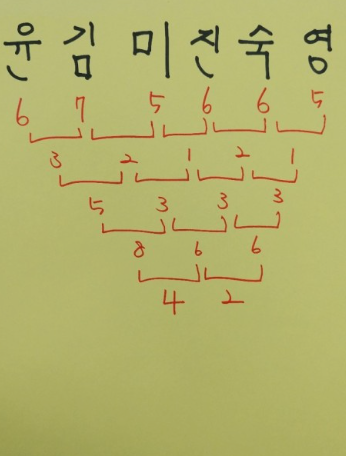 윤 김 미 진 숙 영
6 7 5 6 6 5
3 2 1 2 1
5 3 3 3
8 6 6
4 2